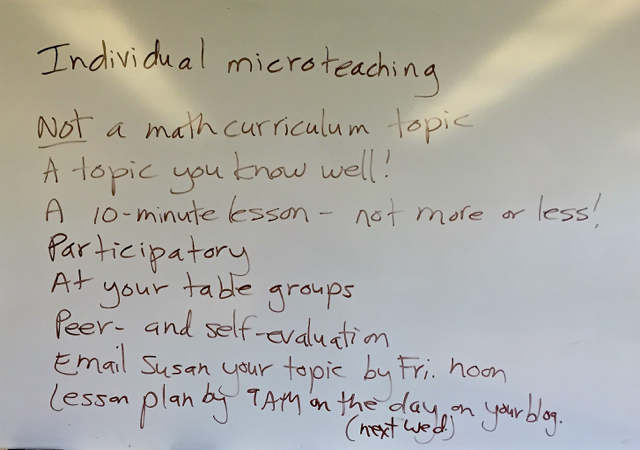 Individual microteaching
Not a math curriculum topic
A topic you know well!
A 10-minute lesson - not more or less!
Participatory
At your table groups
Peer- and self-evaluation
Email Susan your topic by Fri. noon
Lesson plan by 9AM on the day, on your blog.
(next Wed.)